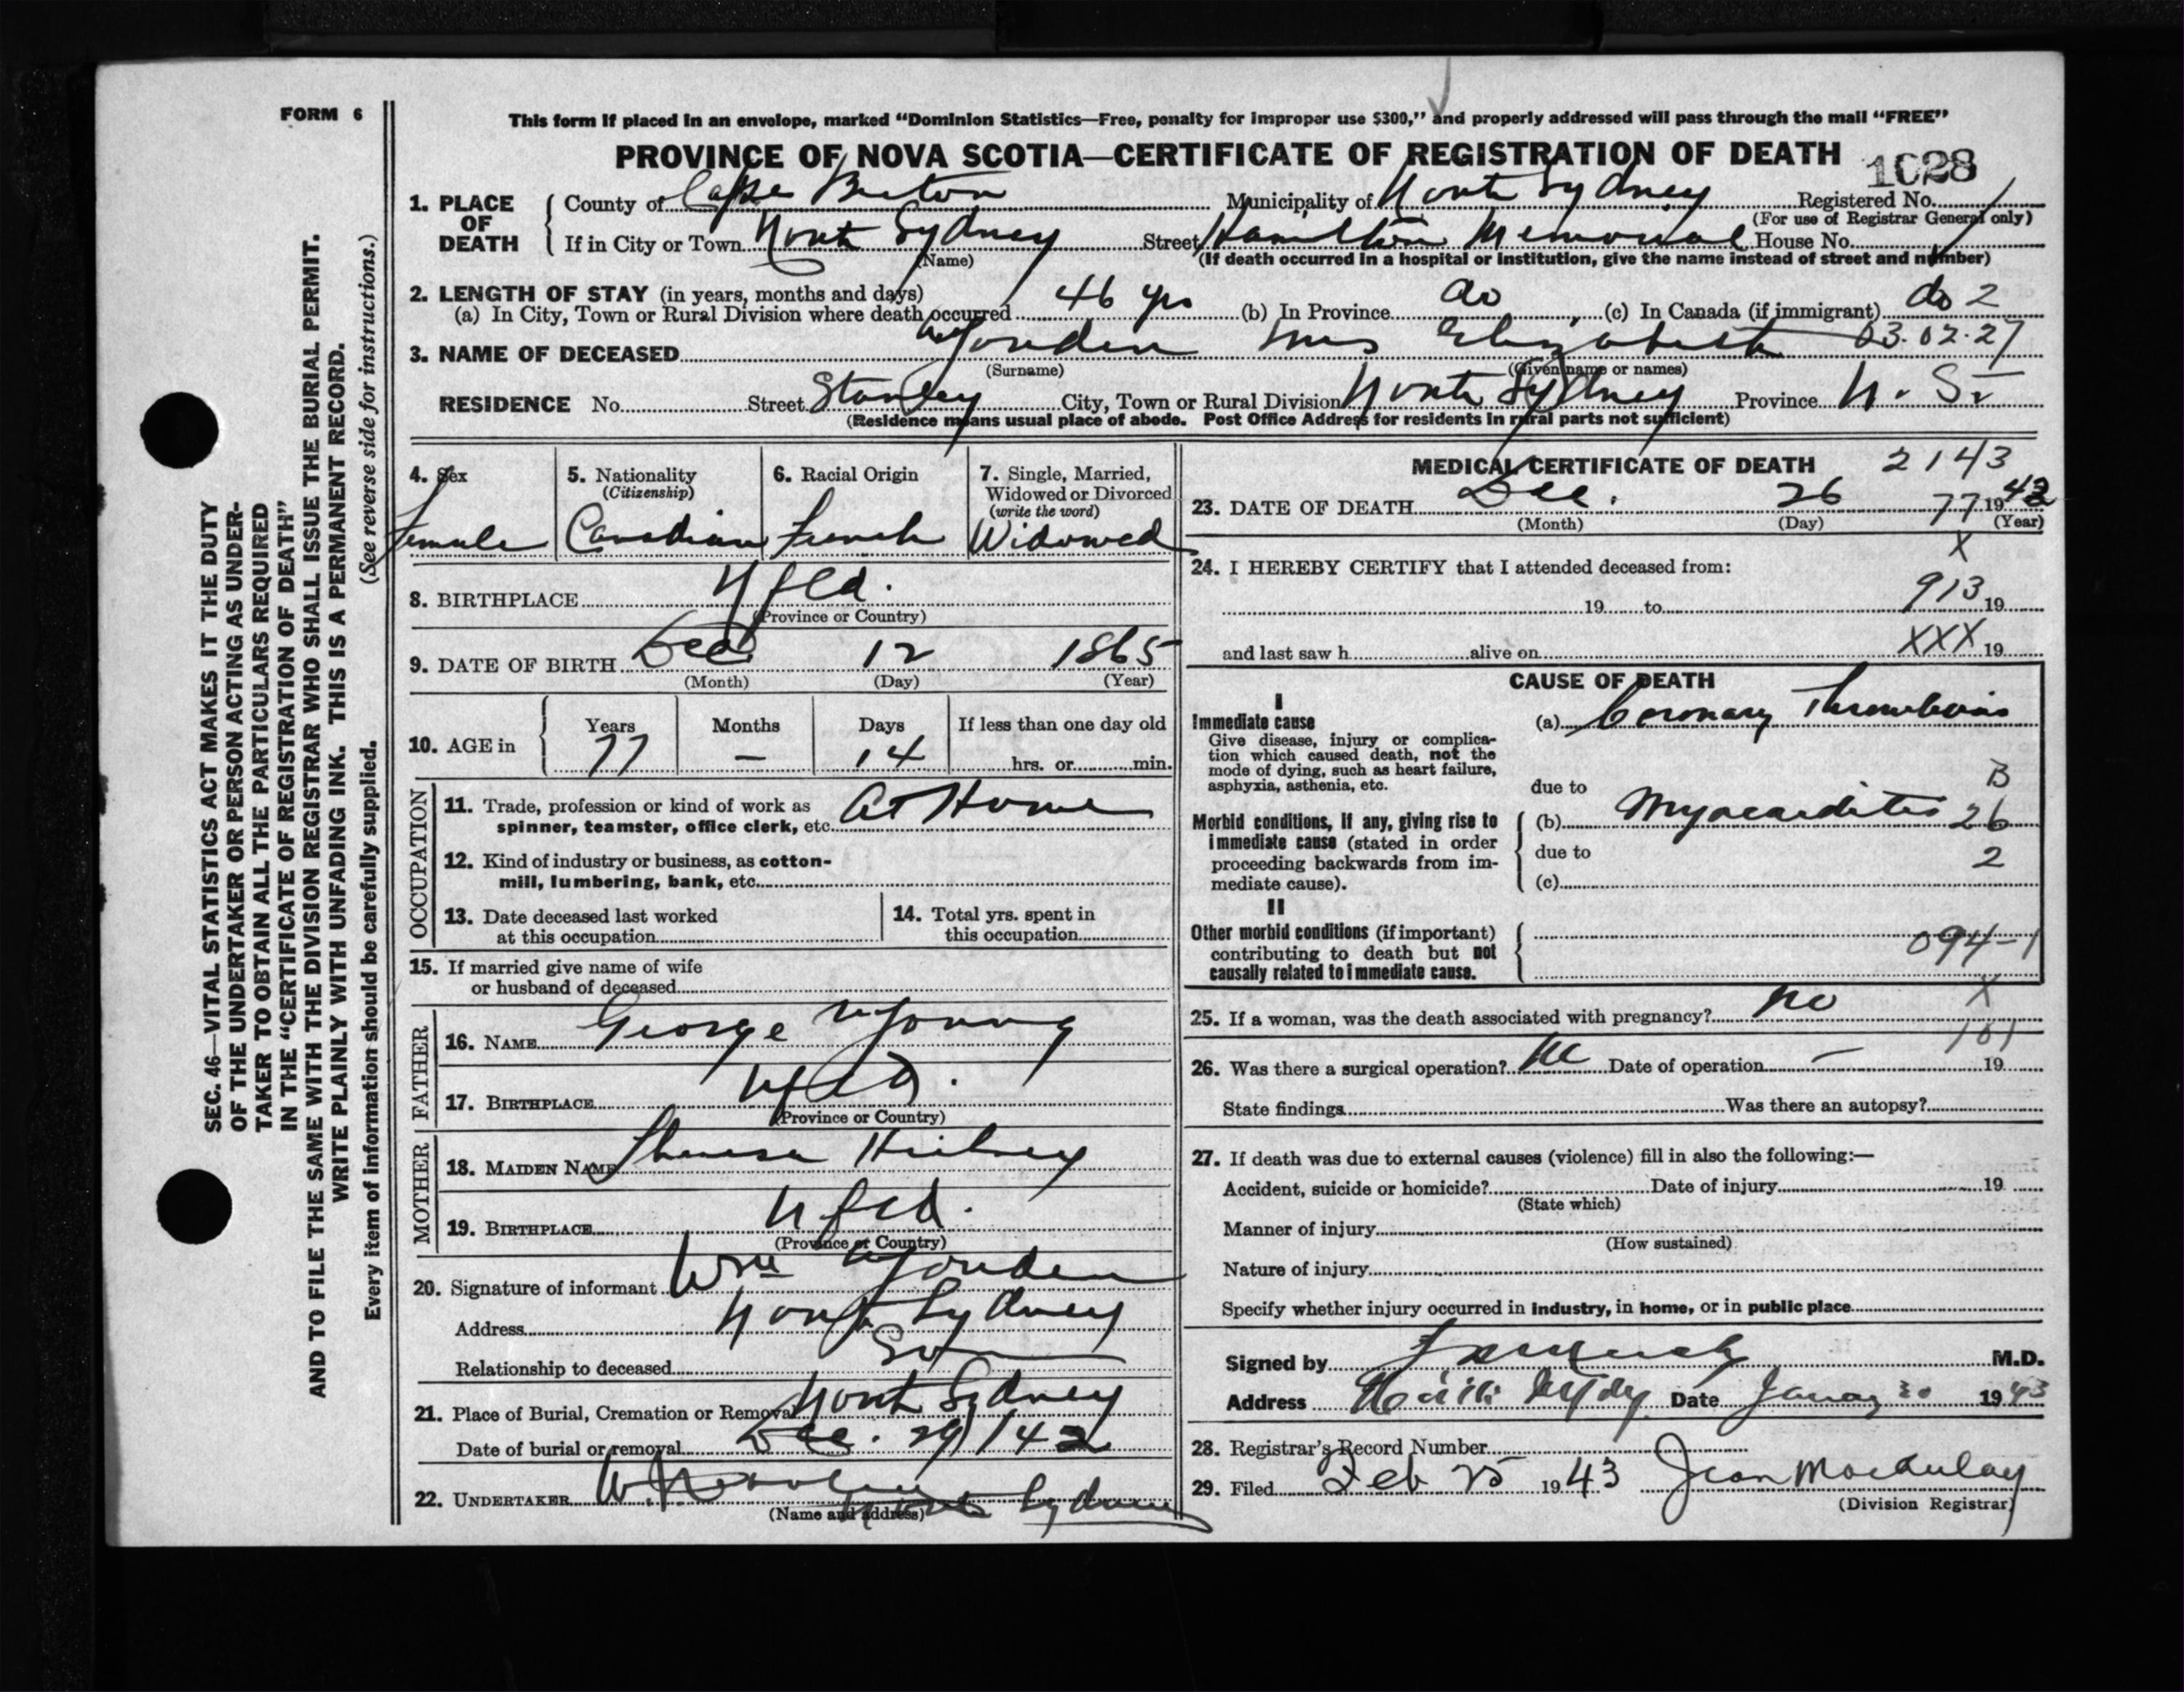 FORM 6
This form if placed in an envelope, marked "Dominion Statistics—Free, penalty for improper use $300," and properly addressed will pass through the mail "FREE"
PROVINCE OF NOVA SCOTIA—CERTIFICATE OF REGISTRATION OF DEATH
1028
1. PLACE OF DEATH
County of Cape Breton Municipality of North Sydney Registered No.
(For use of Registrar General only)
If in City or Town North Sydney Street Hamilton Memorial House No.
(Name) (If death occurred in a hospital or institution, give the name instead of street and number)
2. LENGTH OF STAY (in years, months and days)
(a) In City, Town or Rural Division where death occurred 46 yrs (b) In Province do (c) In Canada (if immigrant) do 2
3. NAME OF DECEASED Youden Mrs Elizabeth 03.02.27
(Surname) (Given name or names)
RESIDENCE No. Street Stanley City, Town or Rural Division North Sydney Province N. S.
(Residence means usual place of abode. Post Office Address for residents in rural parts not sufficient)
4. Sex
Female
5. Nationality
(Citizenship)
Canadian
6. Racial Origin
French
7. Single, Married,
Widowed or Divorced
(write the word)
Widowed
8. BIRTHPLACE Nfld.
(Province or Country)
9. DATE OF BIRTH Dec 12 1865
(Month) (Day) (Year)
10. AGE in
Years Months Days If less than one day old
77 — 14 hrs. or min.
OCCUPATION
11. Trade, profession or kind of work as
spinner, teamster, office clerk, etc. At Home
12. Kind of industry or business, as cotton-
mill, lumbering, bank, etc.
13. Date deceased last worked
at this occupation
14. Total yrs. spent in
this occupation
15. If married give name of wife
or husband of deceased
FATHER
16. NAME George Young
17. BIRTHPLACE Nfld.
(Province or Country)
MOTHER
18. MAIDEN NAME Theresa
19. BIRTHPLACE Nfld.
(Province or Country)
20. Signature of informant Wm Youden
Address North Sydney
Relationship to deceased Son
21. Place of Burial, Cremation or Removal North Sydney
Date of burial or removal Dec. 29/42
22. UNDERTAKER North Sydney
(Name and address)
MEDICAL CERTIFICATE OF DEATH 2143
23. DATE OF DEATH Dec. 26 77 1942
(Month) (Day) (Year)
X
24. I HEREBY CERTIFY that I attended deceased from:
19 to 913 19
and last saw h alive on XXX 19
CAUSE OF DEATH
I
Immediate cause
Give disease, injury or complica-
tion which caused death, not the
mode of dying, such as heart failure,
asphyxia, asthenia, etc.
(a) Coronary Thrombosis
B
due to
Morbid conditions, if any, giving rise to
immediate cause (stated in order
proceeding backwards from im-
mediate cause).
(b) Myocarditis 26
due to 2
(c)
II
Other morbid conditions (if important)
contributing to death but not
causally related to immediate cause.
094-1
X
25. If a woman, was the death associated with pregnancy? no
101
26. Was there a surgical operation? no Date of operation — 19
State findings Was there an autopsy?
27. If death was due to external causes (violence) fill in also the following:—
Accident, suicide or homicide? Date of injury 19
(State which)
Manner of injury
(How sustained)
Nature of injury
Specify whether injury occurred in industry, in home, or in public place
Signed by M.D.
Address Date 1943
28. Registrar's Record Number
29. Filed Feb 25 1943 Jean MacAulay
(Division Registrar)
SEC. 46—VITAL STATISTICS ACT MAKES IT THE DUTY
OF THE UNDERTAKER OR PERSON ACTING AS UNDER-
TAKER TO OBTAIN ALL THE PARTICULARS REQUIRED
IN THE "CERTIFICATE OF REGISTRATION OF DEATH"
AND TO FILE THE SAME WITH THE DIVISION REGISTRAR WHO SHALL ISSUE THE BURIAL PERMIT.
WRITE PLAINLY WITH UNFADING INK. THIS IS A PERMANENT RECORD.
Every item of information should be carefully supplied. (See reverse side for instructions.)